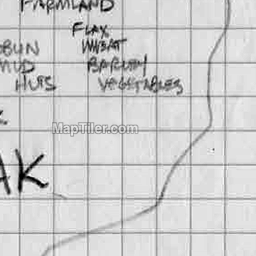 FARMLAND
FLAX
WHEAT
BARLEY
VEGETABLES
MUD
HUTS
MapTiler.com
AK